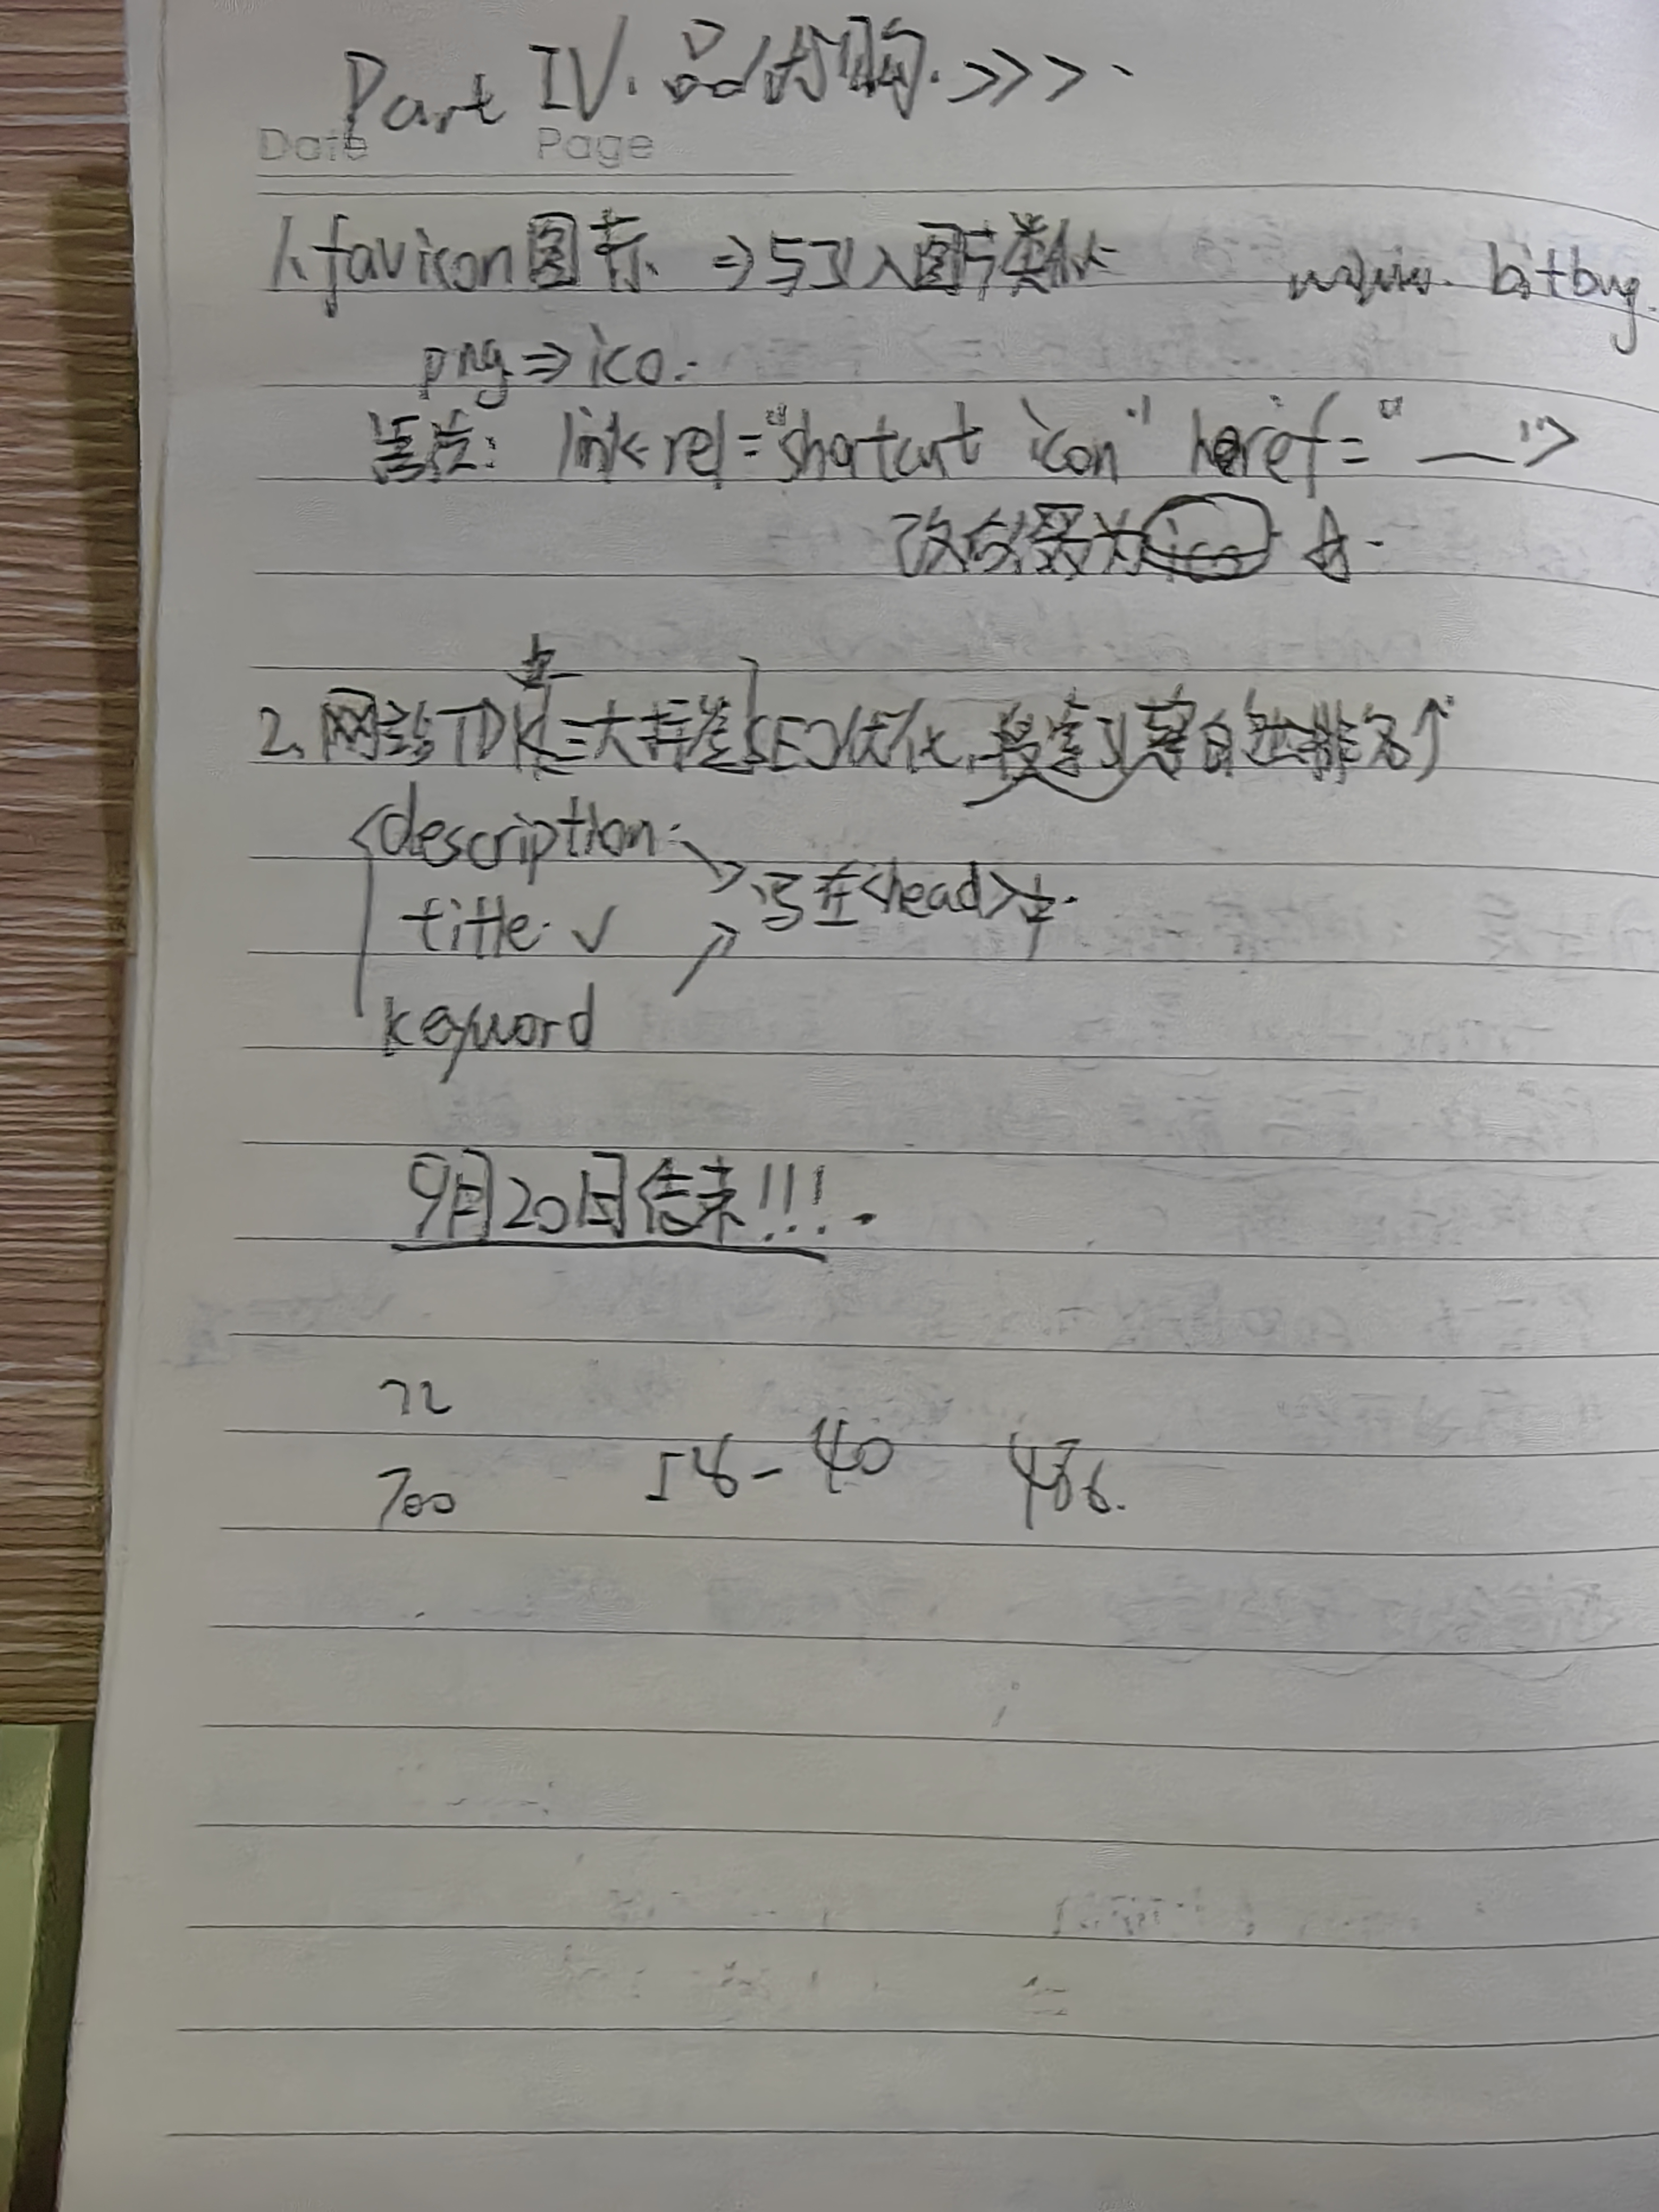 Part IV. 品优购. >>>.
Date Page
1. favicon图标 ⇒ 与引入图片类似 www. bitbug.
png ⇒ ico.
link rel="shortcut icon" href="__">
改后缀为ico
2. 网站TDK三大标签SEO优化, 搜索引擎自然排名↑
description.
写在<head>中.
title. ✓
keyword
9月20日结束!!!.
72
700 40 486.